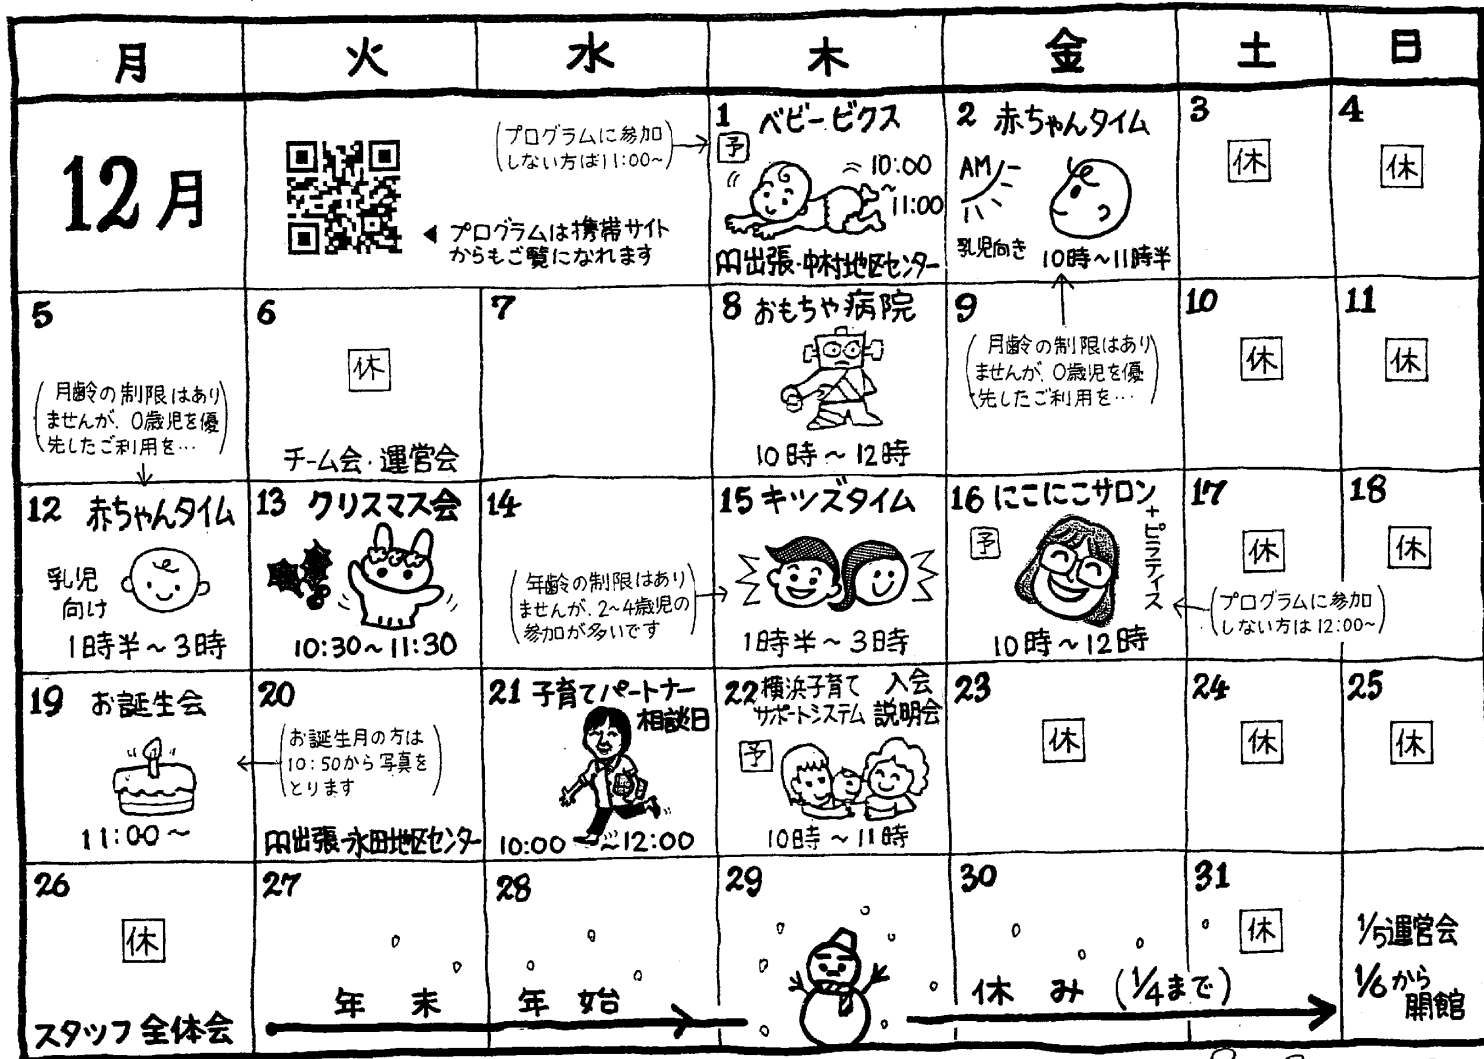 月 火 水 木 金 土 日
12月
プログラムは携帯サイト
からもご覧になれます
(プログラムに参加
しない方は11:00~)
1 ベビービクス
予
10:00
~
11:00
出張・中村地区センター
2 赤ちゃんタイム
AM
乳児向き 10時~11時半
3
休
4
休
5
(月齢の制限はあり
ませんが、0歳児を優
先したご利用を…)
6
休
チーム会・運営会
7
8 おもちゃ病院
10時~12時
9
(月齢の制限はあり
ませんが、0歳児を優
先したご利用を…)
10
休
11
休
12 赤ちゃんタイム
乳児
向け
1時半~3時
13 クリスマス会
10:30~11:30
14
(年齢の制限はあり
ませんが、2~4歳児の
参加が多いです)
15 キッズタイム
1時半~3時
16 にこにこサロン
+ピラティス
予
10時~12時
17
休
(プログラムに参加
しない方は12:00~)
18
休
19 お誕生会
11:00~
20
(お誕生月の方は
10:50から写真を
とります)
出張・永田地区センター
21 子育てパートナー
相談日
10:00~12:00
22 横浜子育て 入会
サポートシステム 説明会
予
10時~11時
23
休
24
休
25
休
26
休
スタッフ全体会
27
28
29
30
31
休
年末年始休み(1/4まで)
1/5運営会
1/6から
開館